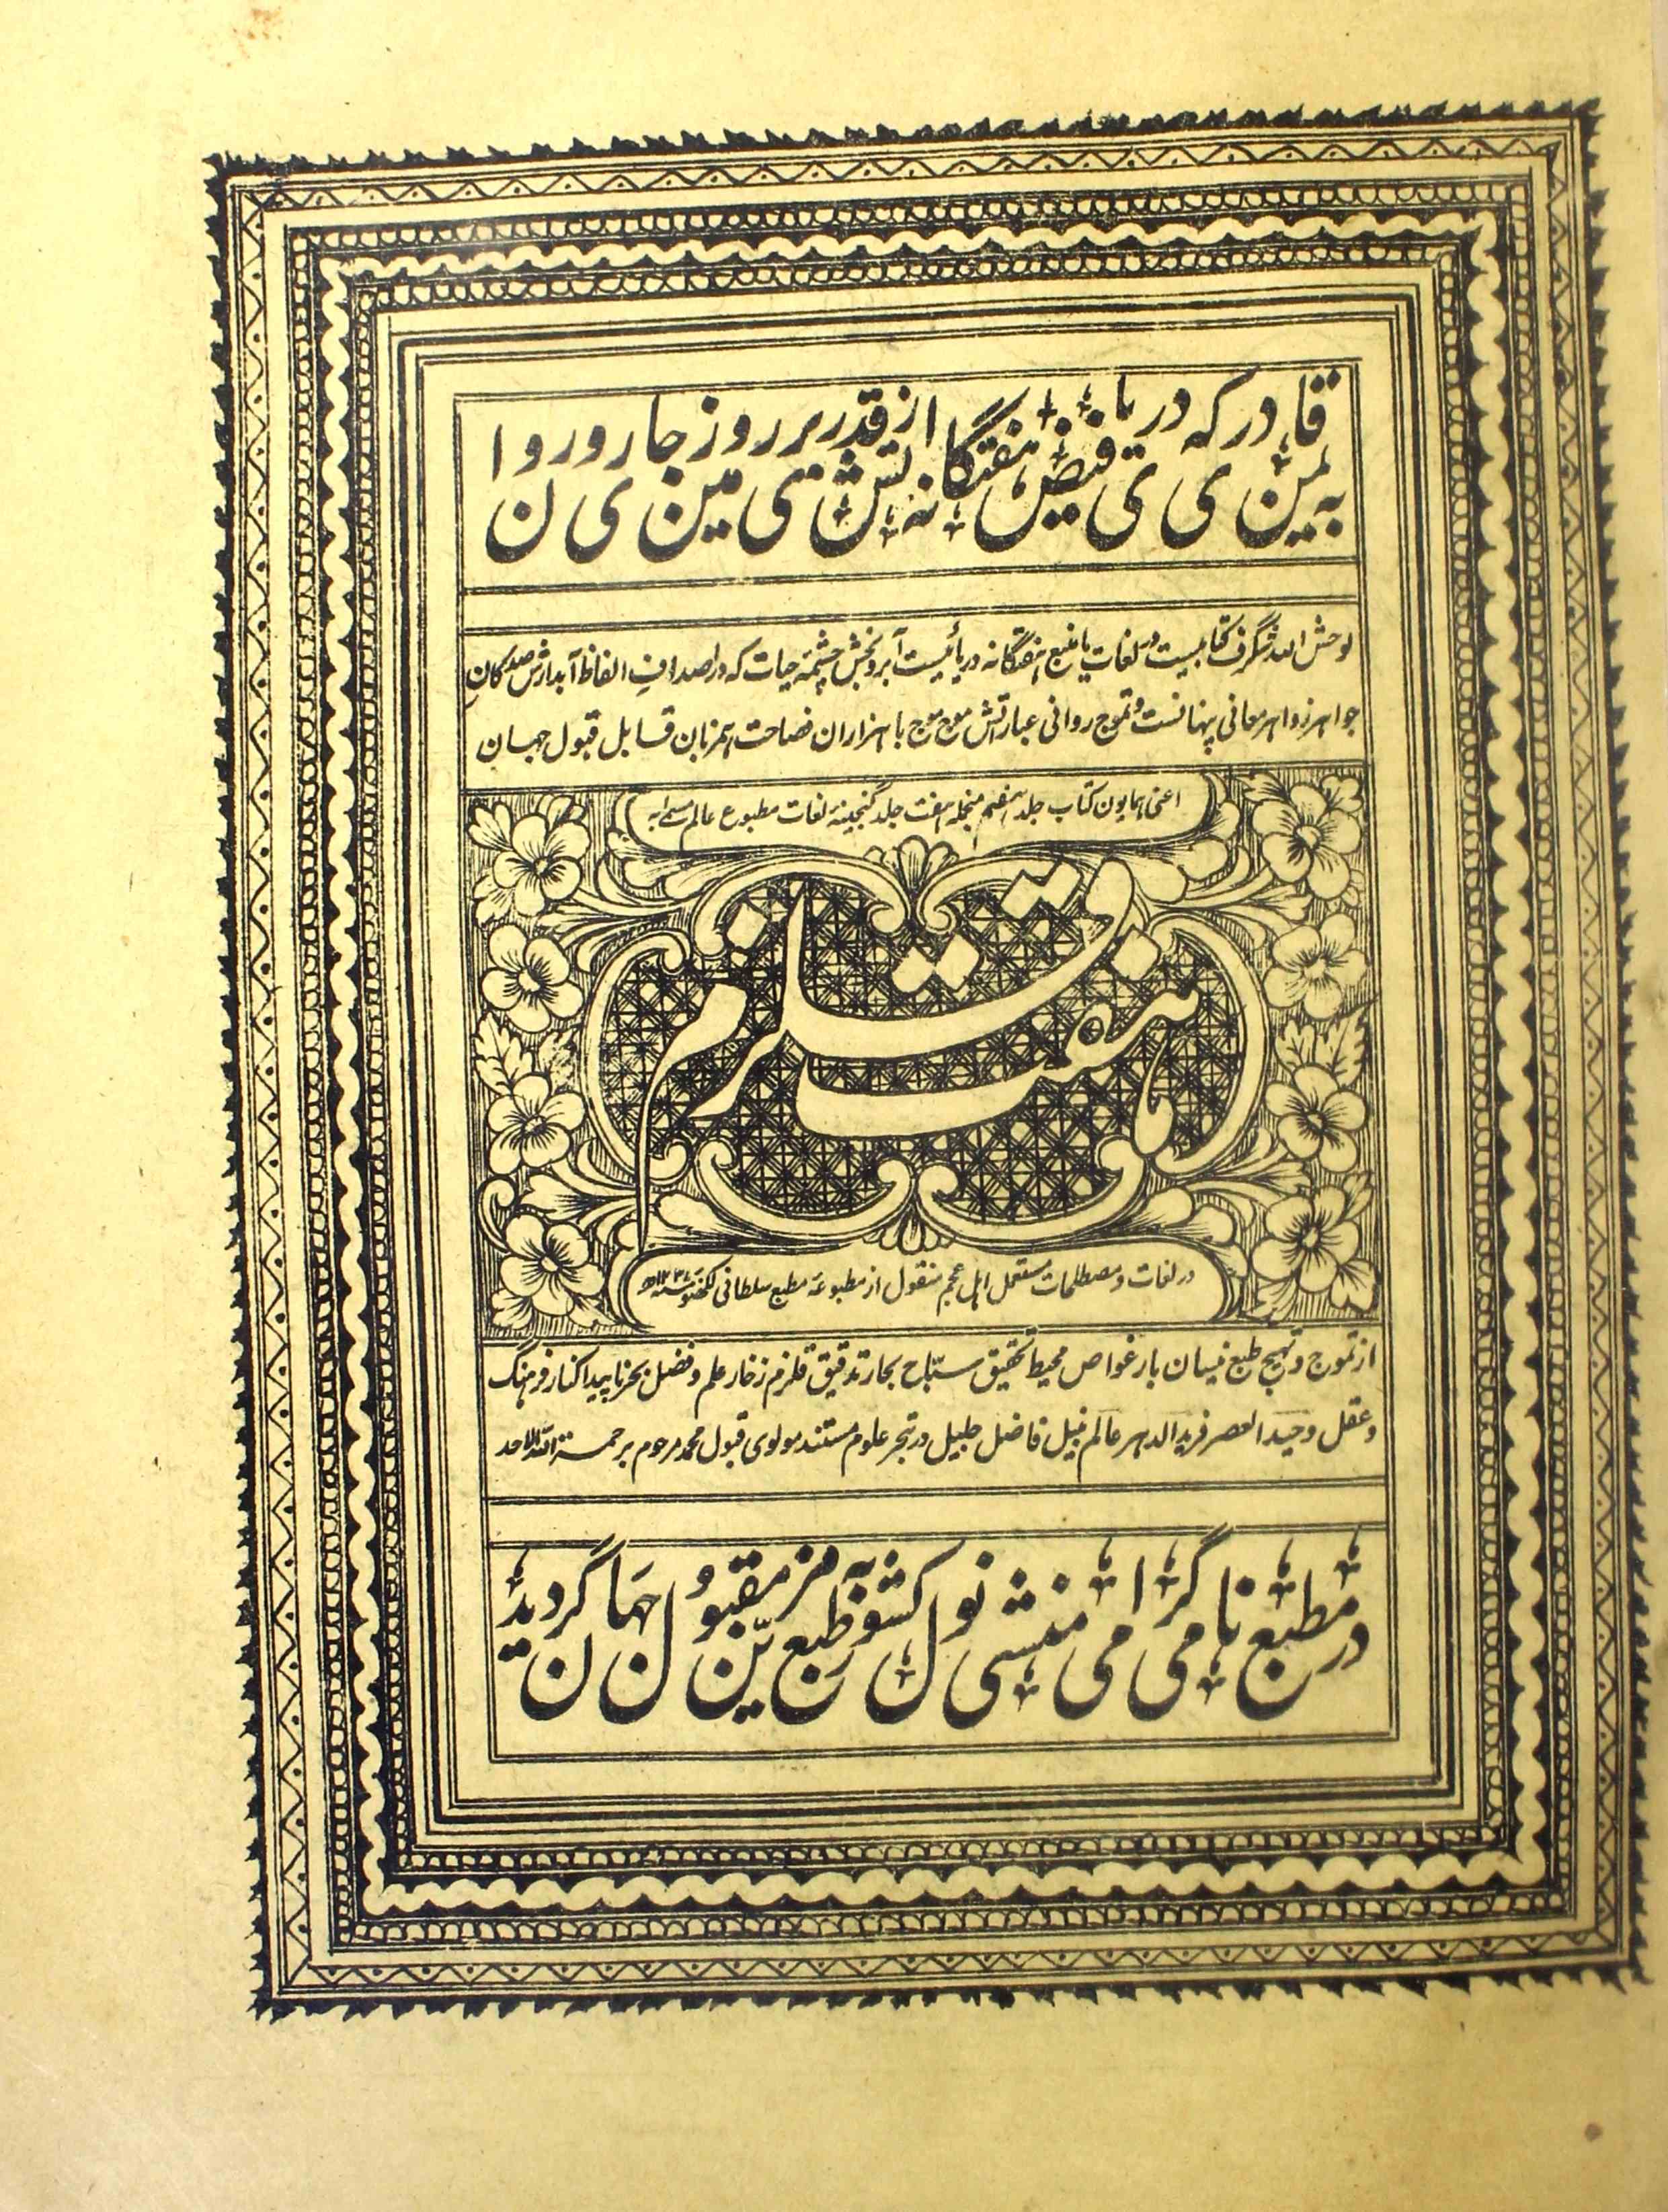 بہ یمن قادری کہ دریای فیض ہفتگانہ از قدرتش بر روی زمین جاری و روان
لوحش اللہ شگرف کتابیست در لغات یا منبع ہفتگانہ دریائیست آبرو بخش چشمۂ حیات کہ در اصدافِ الفاظ آبدارش صد کان
جواہر زواہر معانی پنہانست و تموج روانی عبارتش موج موج با ہزاران فصاحت ہمزبان قابل قبول جہان
اعنی ہمایون کتاب جلد ہفتم منجملہ ہفت جلد گنجینۂ لغات مطبوع عالم مسمیٰ بہ
ہفت قلزم
در لغات و مصطلحات مستعمل اہل عجم منقول از مطبوعۂ مطبع سلطانی لکھنؤ
از تموج و تہیج طبع نیسان بار غواص محیط تحقیق سبّاح بحار تدقیق قلزم زخار علم و فضل بحر ناپیدا کنار فرہنگ
و عقل وحید العصر فرید الدہر عالم نبیل فاضل جلیل در تبحر علوم مستند مولوی قبول محمد مرحوم بر حمۃ اللہ الاحد
در مطبع نامی گرامی منشی نولکشور بہ طبع مزین مقبول جہان گردید